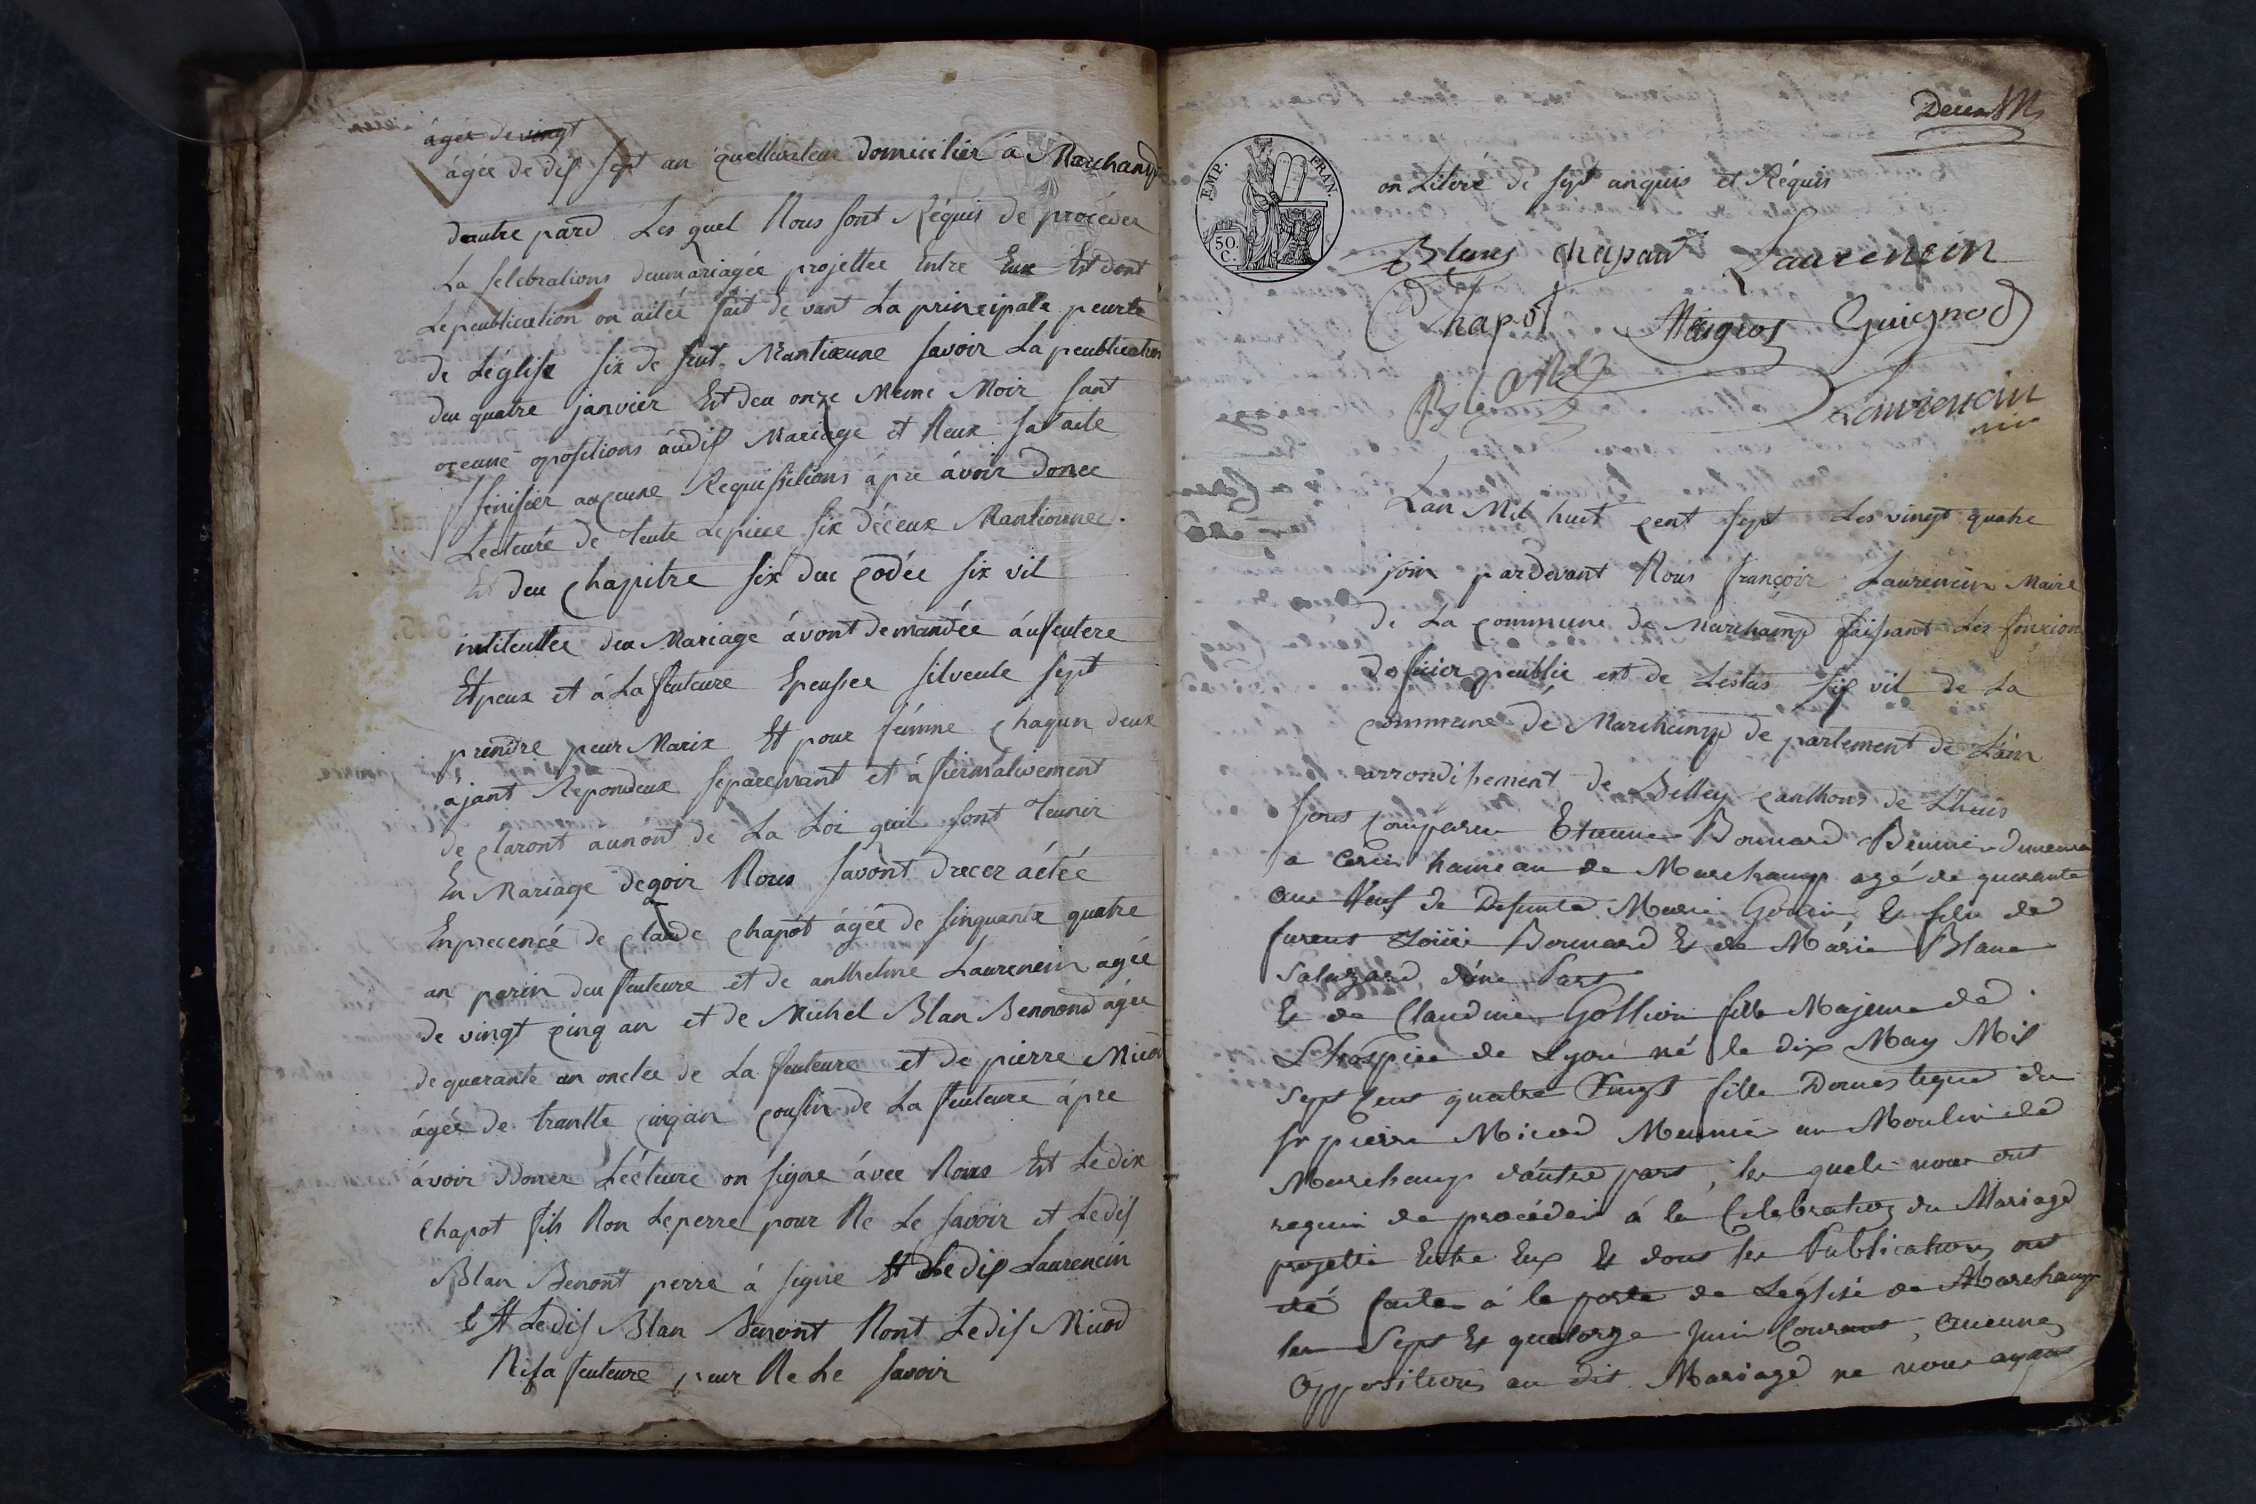 âgée de vingt
âgée de dis sept an quellivateur domicilier á Marchamp
dautre pard Les quel Nous sont Réquis de proceder
La selebrations deumariagée projettee Entre Eux Et dont
Lepeublication on aitéé fait de vant La principale peurte
de Léglise six de sent Mantioune savoir La peublication
deu quatre janvier Et deu onze Meme Moir sant
oceune opositions âudis Mariage et Neux sa acte
ssinifier auqeune Requissitions ápre ávoir donee
Lecteure de teute Lepiece six déceux Mantiounee.
Et deu chapitre six deu codée six vil
intiteullee deu Mariage ávont demandée áufeutere
Etpeux et á La feuteure Epeusee silveule sept
prendre peur Marix Et pour feimne chaqun deux
ajant Repondeux separemant et á fiermativement
de claront aunont de La Loi quil sont Teunir
En Mariage deqoir Nous savont drecer áétée
Enprecencé de claude chapot ágée de sinquante quatre
an parin deu feuteure et de anthelme Laurencin agée
de vingt cinq an et de Michel Blan Bennond ágée
de quarante an onclee de La feuteure et de pierre Micod
ágée de trantte cinqan cousin de La feuteure ápre
ávoir Doner Lécteure on signe ávec Nous Et Le dix
Chapot fils Non Leperre pour Ne Le savoir et Ledis
Blan Benont perre á signe Et Ledis Laurencin
Et Ledis Blan Benont Nont Ledis Micod
Nisa feuteure peur Ne Le savoir
on Literé de sept anquis et Réquis
Blanc chapaut Laurencin
Chapot Maigros Guignod
Laurencin
Lan Mil huit cent sept Les vingt quatre
join pardevant Nous françoir Laurencin Maire
de La commune de Marchamp faissant Les fonxion
dofficier peublic est de Lestas six vil de La
commune de Marchamp de partement de Lain
arrondissement de Belley canthons de Lhuis
sont comparu Etienne Bonnard Bennier demeurant
a Cerin hameau de Marchamp agé de quarante
ans Veuf de Defunte Marie Godin & fils de
furent Bonnard & de Marie Blanc
Saluzard, d'une Part
& de Claudine Gollion fille Majeure de
L'hospice de Lyon né le dix May Mil
Sept Cent quatre Vingt fille Domestique du
Sr pierre Micod Meunié au Moulin de
Marchamp d'autre part, les quels nous ont
requis de procéder á la Célébration du Mariage
projetté Entre Eux & dont les Publications ont
été faites á la porte de Léglise de Marchamp
les Sept & quatorze Juin Courant, aucunes
oppositions au dit Mariage ne nous ayant
EMP. FRAN.
50. C.